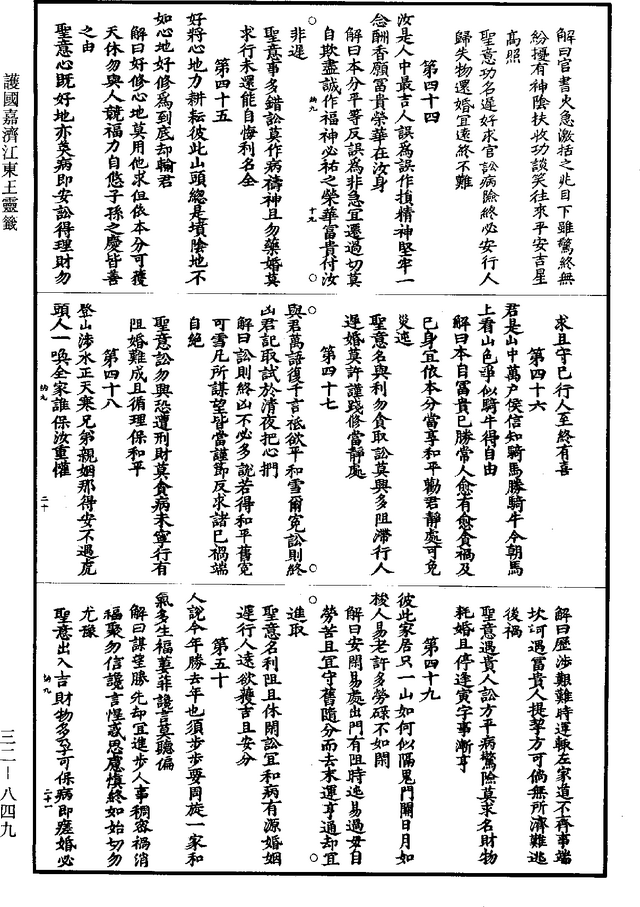 護國嘉濟江東王靈籤
三二—八四九
解曰官書火急激括之兆目下雖驚終無
紛擾有神陰扶收功談笑往來平安吉星
高照
聖意功名遲好求官訟病險終必安行人
歸失物還婚宜遠終不難
第四十四
汝是人中最吉人誤為誤作損精神堅牢一
念酬香願富貴榮華在汝身
解曰本分平等反誤為非急宜遷過切莫
自欺盡誠作福神必祐之榮華富貴付汝
非遲
聖意事多錯訟莫作病禱神且勿藥婚莫
求行未還能自悔利名全
第四十五
好將心地力耕耘彼此山頭總是墳陰地不
如心地好修為到底却輸君
解曰好修心地莫用他求但依本分可獲
天休勿與人競福力自悠子孫之慶皆善
之由
聖意心既好地亦美病即安訟得理財勿
求且守已行人至終有喜
第四十六
君是山中萬戶侯信知騎馬勝騎牛今朝馬
上看山色爭似騎牛得自由
解曰本自富貴已勝常人愈有愈貪禍及
已身宜依本分當享和平勸君靜處可免
災迍
聖意名與利勿貪取訟莫興多阻滯行人
遲婚莫許謹踐修當靜處
第四十七
與君萬語復千言祗欲平和雪爾冤訟則終
凶君記取試於清夜把心捫
解曰訟則終凶不必多說若得和平舊冤
可雪凡所謀望皆當謹節反求諸已禍端
自絕
聖意訟勿興恐遭刑財莫貪病未寧行有
阻婚難成且循理保和平
第四十八
登山涉水正天寒兄弟親姻那得安不遇虎
頭人一喚全家誰保汝重懽
解曰歷涉艱難時運轗左家道不齊事端
坎坷遇富貴人提挈方可倘無所濟難逃
後禍
聖意遇貴人訟方平病驚險莫求名財物
耗婚且停逢寅字事漸亨
第四十九
彼此家居只一山如何似隔鬼門關日月如
梭人易老許多勞碌不如閑
解曰安閑易處出門有阻時迍易過毋自
勞苦且宜守舊隨分而去末運亨通却宜
進取
聖意名利阻且休閑訟宜和病有源婚姻
遲行人遠欲獲吉且安分
第五十
人說今年勝去年也須步步要周旋一家和
氣多生福萋菲讒言莫聽偏
解曰謀望勝先却宜進步人事稠密禍消
福聚勿信讒言惶惑思慮慎終如始切勿
尤豫
聖意出入吉財物多孕可保病即瘥婚必